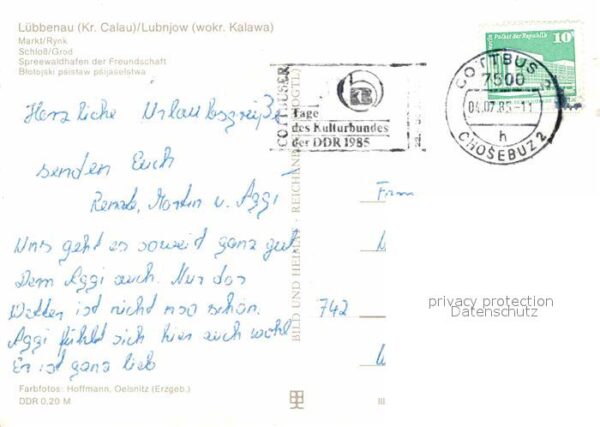 Lübbenau (Kr. Calau)/Lubnjow (wokr. Kalawa)
Markt/Rynk
Schloß/Grod
Spreewaldhafen der Freundschaft
Błotojski pśistaw pśijaśelstwa
Herzliche Urlaubsgrüße
senden Euch
Renate, Martin u. Aggi
Uns geht es soweit ganz gut
Dem Aggi auch. Nur das
Wetter ist nicht so schön.
Aggi fühlt sich hier auch wohl
Er ist ganz lieb
Farbfotos: Hoffmann, Oelsnitz (Erzgeb.)
DDR 0,20 M
BILD UND HEIMAT · REICHENBACH (VOGTL)
COTTBUSER
Tage
des Kulturbundes
der DDR 1985
COTTBUS 2
7500
04.07.85-11
h
CHOŚEBUZ 2
Palast der Republik
10
Fam
742
privacy protection
Datenschutz